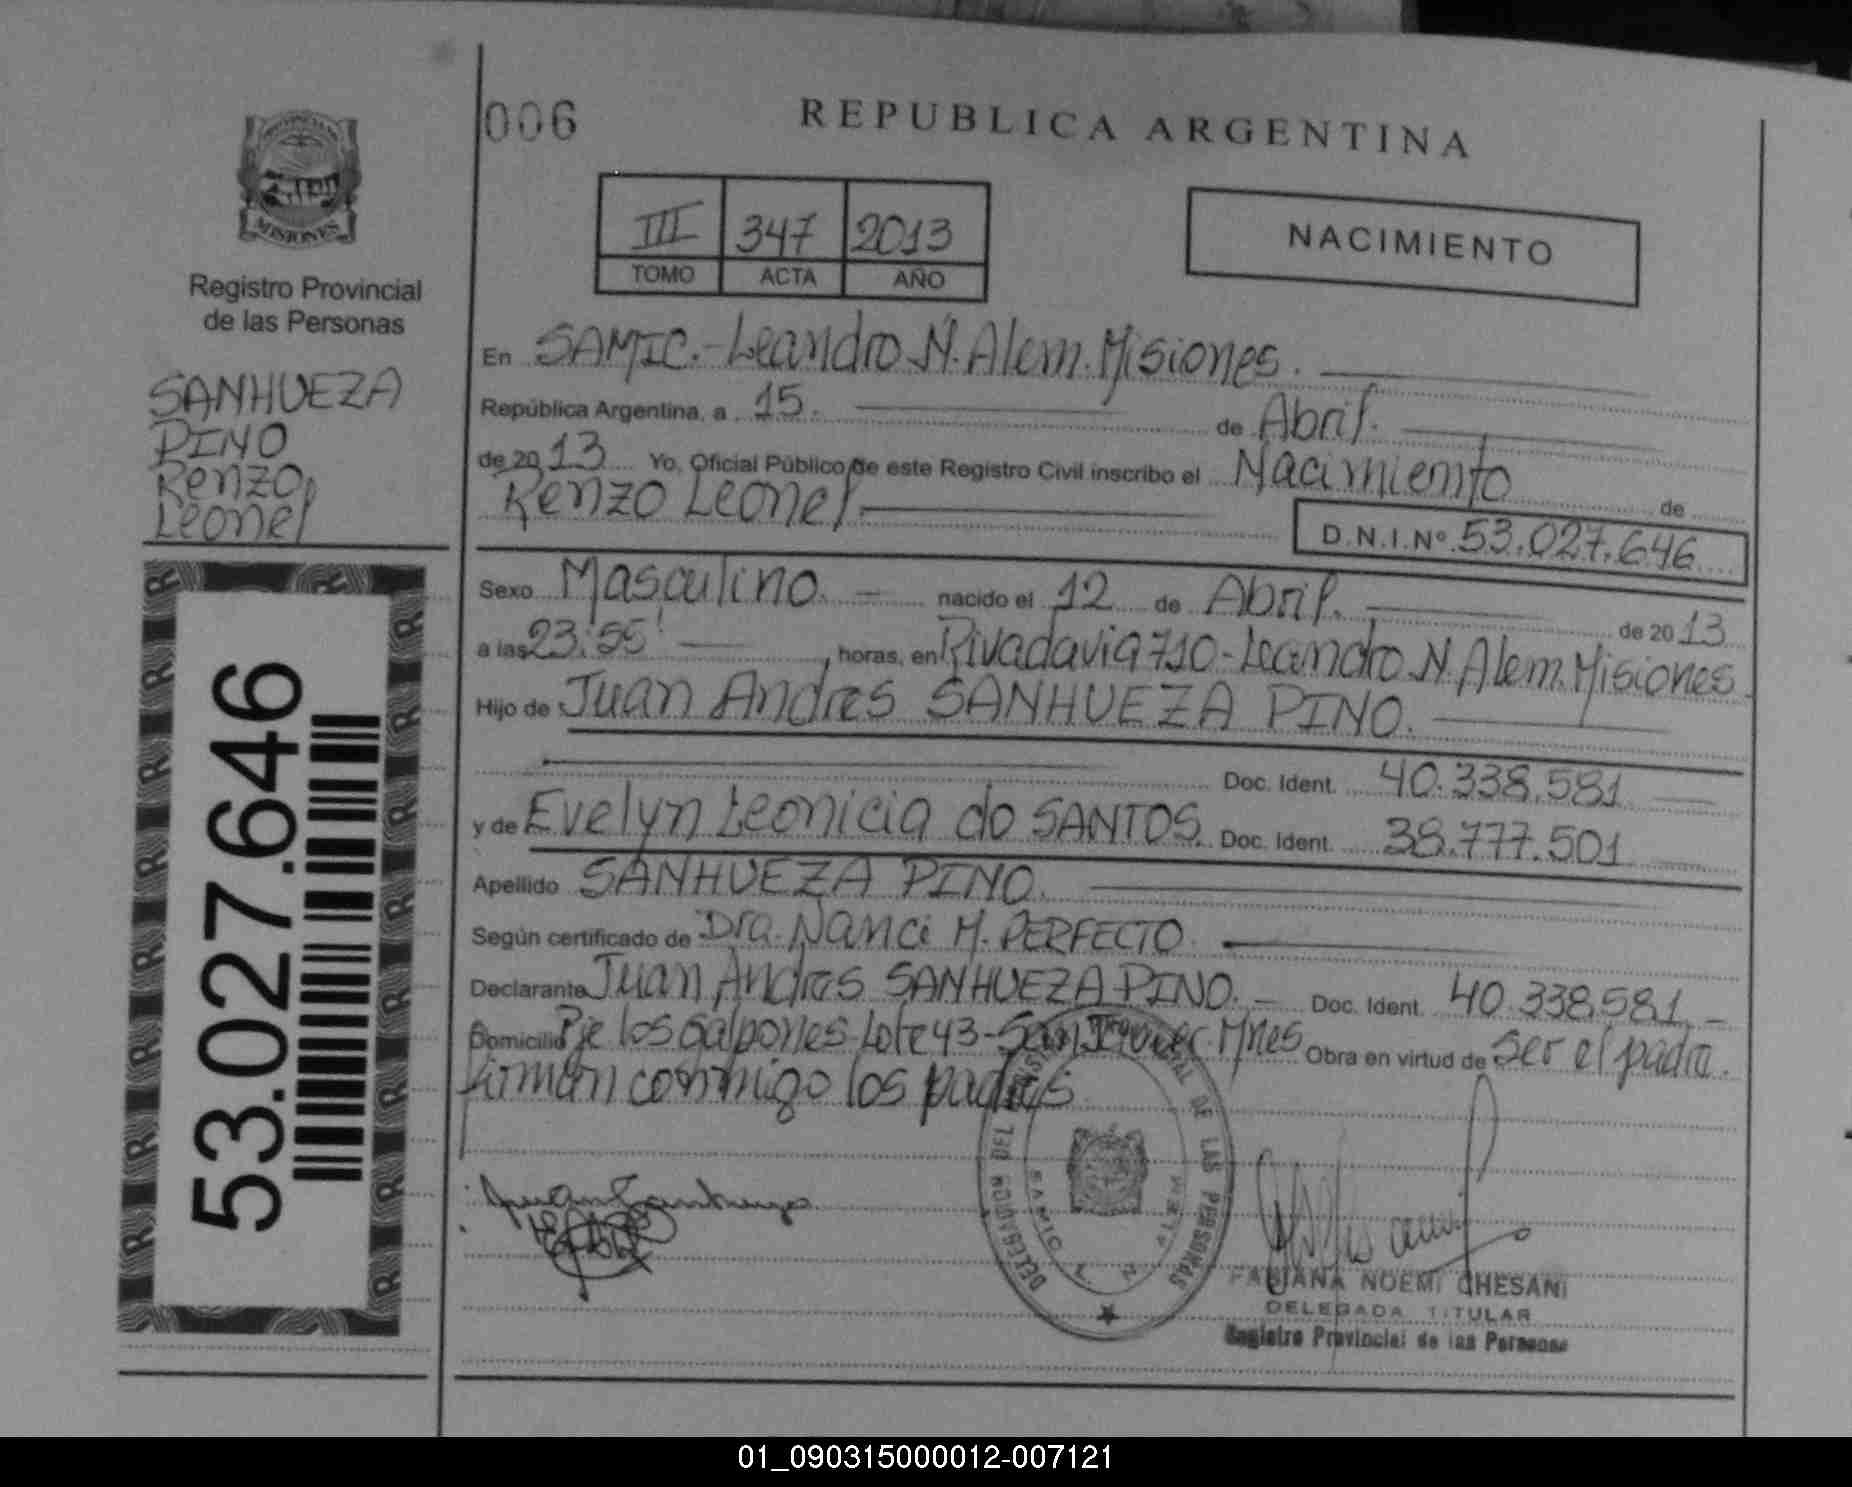 PROVINCIA DE
MISIONES
Registro Provincial
de las Personas
SANHUEZA
PINO
Renzo
Leonel
53.027.646
006
REPUBLICA ARGENTINA
III 347 2013
TOMO ACTA AÑO
NACIMIENTO
En SAMIC.-Leandro N. Alem. Misiones.
República Argentina, a 15. de Abril.
de 2013 Yo, Oficial Público de este Registro Civil inscribo el Nacimiento de
Renzo Leonel
D.N.I.Nº 53.027.646
Sexo Masculino. nacido el 12 de Abril. de 2013
a las 23:55' horas, en Rivadavia 710-Leandro N. Alem. Misiones
Hijo de Juan Andres SANHUEZA PINO.
Doc. Ident. 40.338.581
y de Evelyn Leonicia do SANTOS. Doc. Ident. 38.777.501
Apellido SANHUEZA PINO.
Según certificado de Dra. Nanci M. PERFECTO
Declarante Juan Andres SANHUEZA PINO. Doc. Ident. 40.338.581
Domicilio Pje los Galpones-Lote 43-San Javier. Mnes Obra en virtud de Ser el padre.
firman conmigo los padres
Juan Sanhueza
DELEGACION DEL PROVINCIAL DE LAS PERSONAS
SAMIC L. N. ALEM
FABIANA NOEMI CHESANI
DELEGADA TITULAR
Registro Provincial de las Personas
01_090315000012-007121